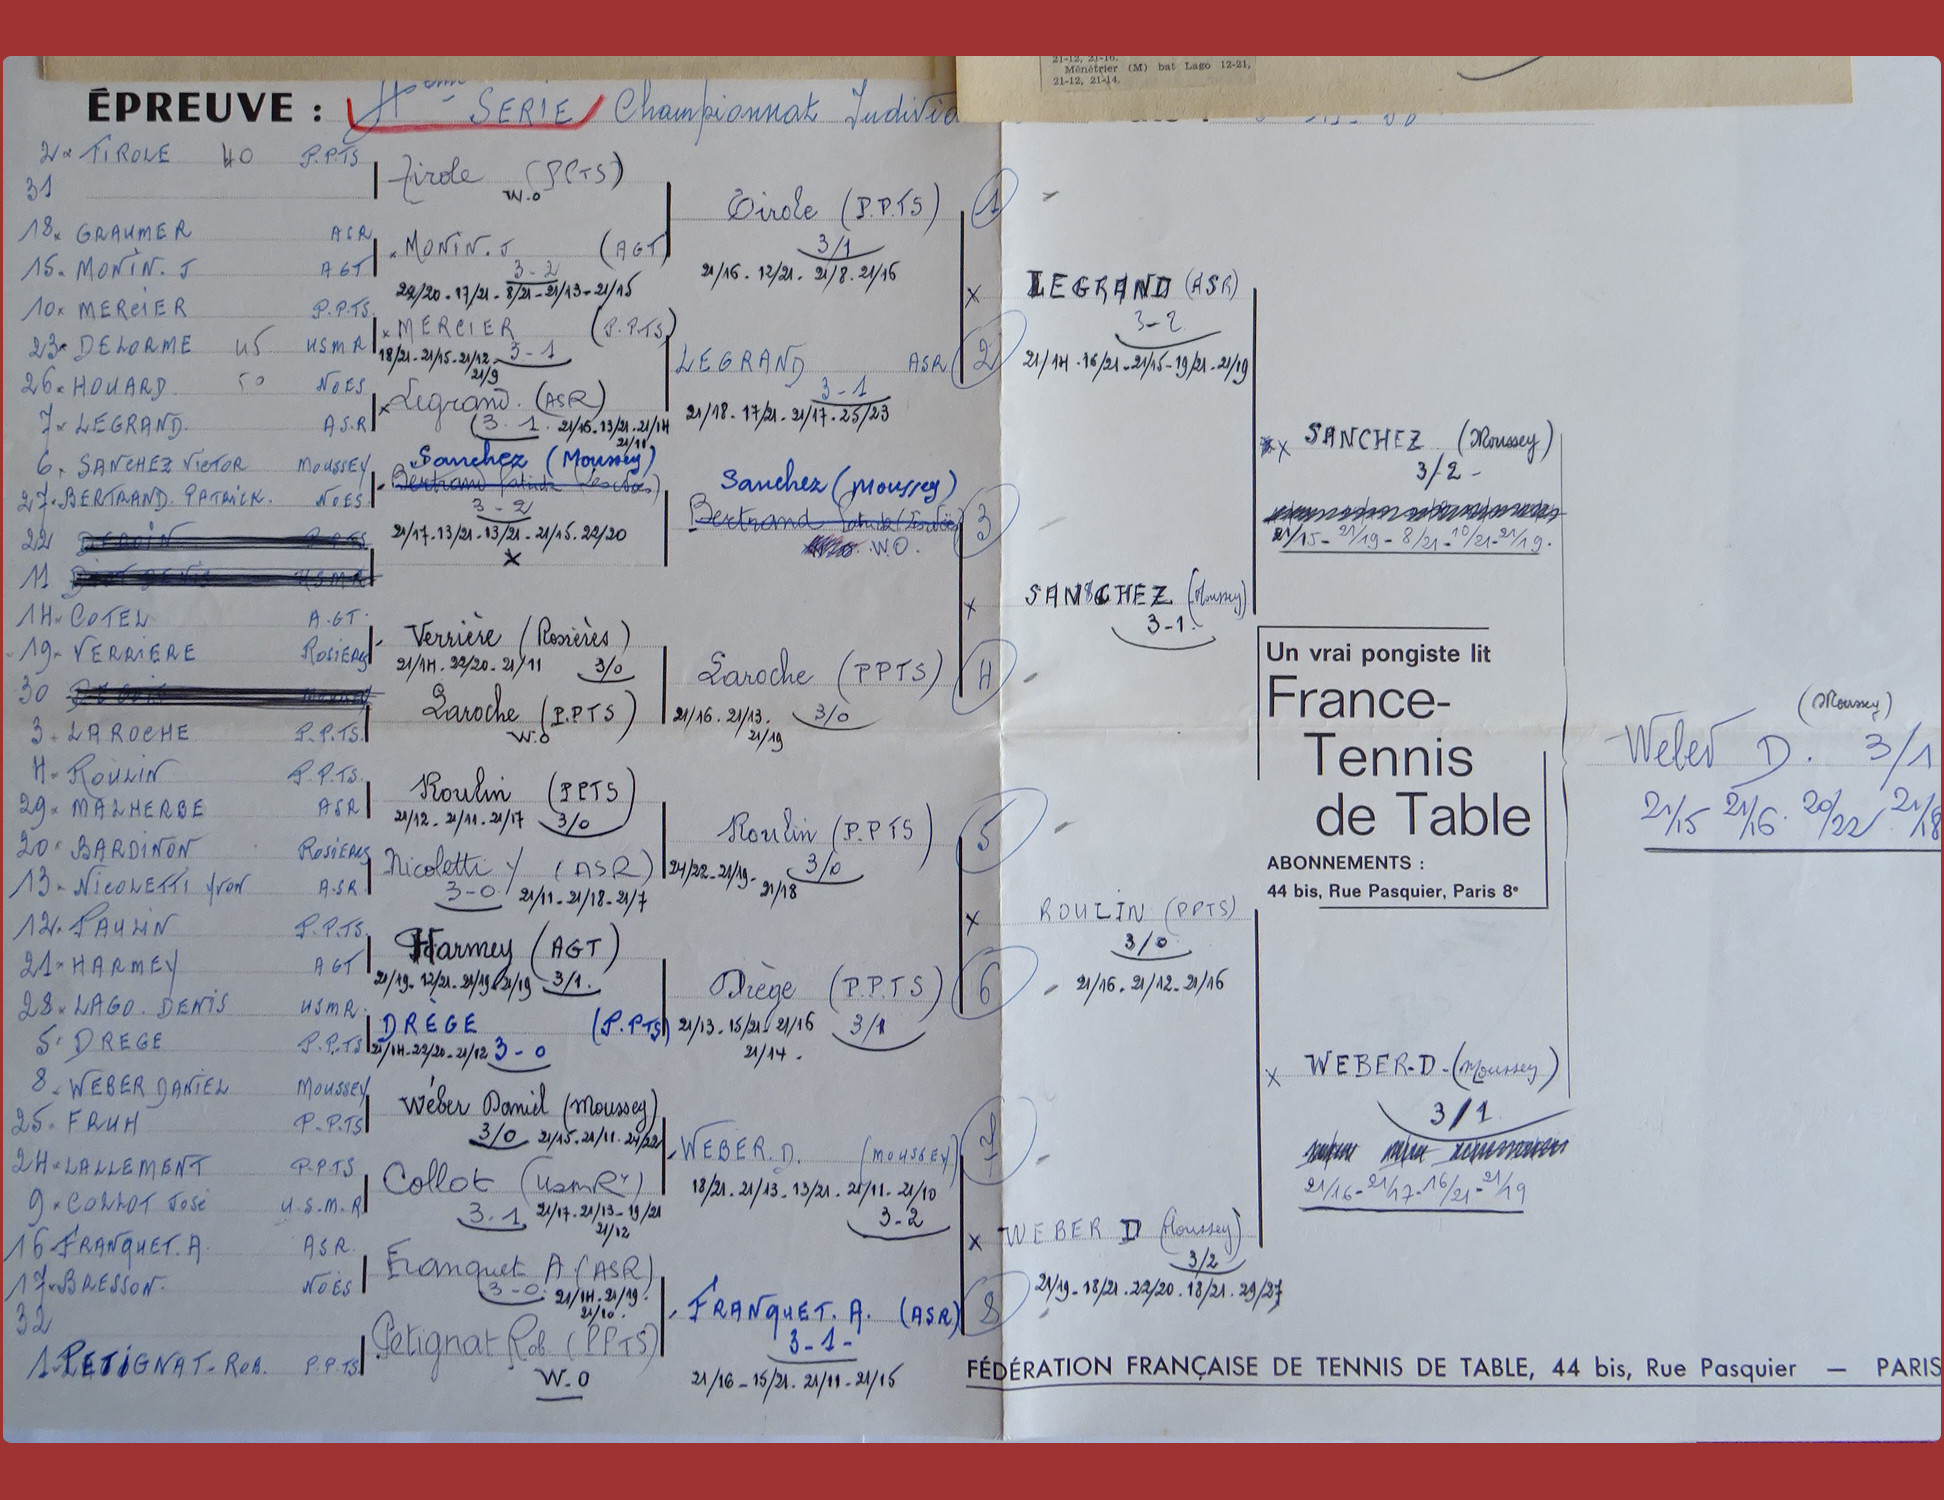 21-12, 21-16.
Ménétrier (M) bat Lago 12-21,
21-12, 21-14.
ÉPREUVE : 4ème SERIE Championnat Individ
2 TIROLE 40 P.P.TS
31
18 GRAUMER ASR
15 MONIN. J AGT
10 MERCIER P.P.TS.
23 DELORME 45 USMR
26 HOUARD 50 NOES
7 LEGRAND. A.S.R
6 SANCHEZ VICTOR MOUSSEY
27 BERTRAND. PATRICK. NOES
22
11
14 COTEL A.G.T.
19 VERRIERE ROSIERES
30
3 LAROCHE P.P.TS.
4 ROULIN P.P.TS.
29 MALHERBE ASR
20 BARDINON ROSIERES
13 NICOLETTI YVON A.S.R
12 PAULIN P.P.TS.
21 HARMEY AGT
28 LAGO. DENIS USMR.
5 DREGE P.P.TS
8 WEBER DANIEL MOUSSEY
25 FRUH P.P.TS
24 LALLEMENT P.P.TS
9 COLLOT José U.S.M.R
16 FRANQUET. A. ASR.
17 BRESSON. NOES
32
1 PETIGNAT-ROB. P.P.TS
Tirole (PPTS)
W.O
MONIN. J (AGT)
3-2
22/20 - 17/21 - 8/21 - 21/13 - 21/15
MERCIER (P.P.TS)
18/21 - 21/15 - 21/12 3-1
21/9
Legrand. (ASR)
3-1. 21/16 - 13/21 - 21/14
21/11
Sanchez (Moussey)
Bertrand Patrick
3-2
21/17 - 13/21 - 13/21 - 21/15 - 22/20
X
Verrière (Rosières)
21/14 - 22/20 - 21/11 3/0
Laroche (P.PTS)
W.O
Roulin (PPTS)
21/12 - 21/11 - 21/17 3/0
Nicoletti Y (ASR)
3-0 21/11 - 21/18 - 21/7
Harmey (AGT)
21/19 - 12/21 - 21/19 - 21/19 3/1.
DREGE (P.PTS)
21/14 - 22/20 - 21/12 3-0
Wéber Daniel (Moussey)
3/0 21/15 - 21/11 - 24/22
Collot (USMR)
3.1 21/17 - 21/13 - 19/21
21/12
Franquet A (ASR)
3-0 21/14 - 21/19
21/10
Petignat Rob (PPTS)
W.O
Tirole (P.P.TS)
3/1
21/16 - 12/21 - 21/8 - 21/16
LEGRAND ASR
3-1
21/18 - 17/21 - 21/17 - 25/23
Sanchez (Moussey)
Bertrand Patrick
W.O.
Laroche (PPTS)
21/16 - 21/13. 3/0
21/19
Roulin (P.PTS)
24/22 - 21/19 - 3/0
21/18
Drège (P.P.TS)
21/13 - 15/21 - 21/16 3/1
21/14
WEBER. D. (MOUSSEY)
18/21 - 21/13 - 13/21 - 21/11 - 21/10
3-2
FRANQUET. A. (ASR)
3-1-
21/16 - 15/21 - 21/11 - 21/15
1
2
3
4
5
6
7
8
LEGRAND (ASR)
3-2
21/14 - 16/21 - 21/15 - 19/21 - 21/19
SANCHEZ (Moussey)
3-1.
ROULIN (PPTS)
3/0
21/16 - 21/12 - 21/16
WEBER D (Moussey)
3/2
21/19 - 18/21 - 22/20 - 18/21 - 29/27
SANCHEZ (Moussey)
3/2 -
21/15 - 21/19 - 8/21 - 10/21 - 21/19.
Un vrai pongiste lit
France-
Tennis
de Table
ABONNEMENTS :
44 bis, Rue Pasquier, Paris 8e
WEBER-D-(Moussey)
3/1
21/16 - 21/17 - 16/21 - 21/19
(Moussey)
Weber D. 3/1
21/15 21/16. 20/22 21/18
FÉDÉRATION FRANÇAISE DE TENNIS DE TABLE, 44 bis, Rue Pasquier — PARIS